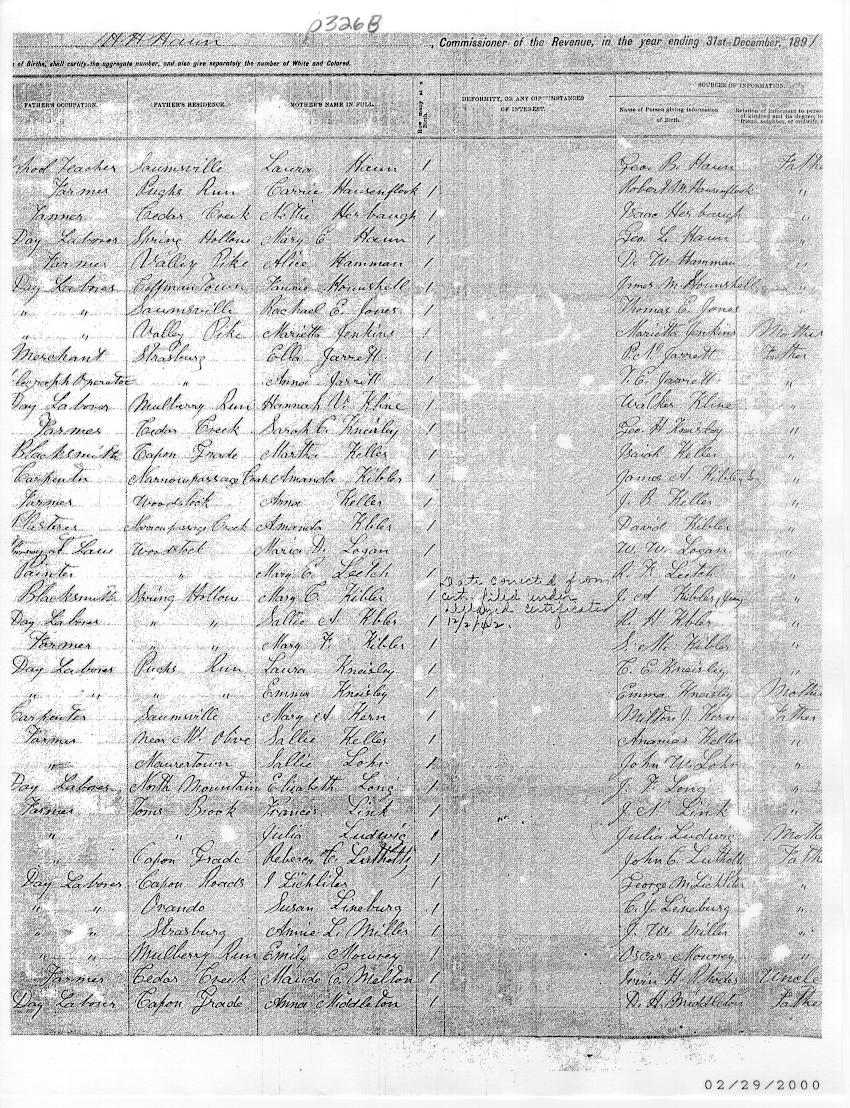 p326B
H H Haun , Commissioner of the Revenue, in the year ending 31st December, 1891
of Births, shall certify the aggregate number, and also give separately the number of White and Colored.
SOURCES OF INFORMATION.
FATHER'S OCCUPATION. FATHER'S RESIDENCE. MOTHER'S NAME IN FULL. How many at a Birth. DEFORMITY, OR ANY CIRCUMSTANCES OF INTEREST. Name of Person giving information of Birth. Relation of informant to person
of kindred and its degree,
friend, neighbor, or midwife,
Teacher Saumsville Laura Haun 1 Geo. B. Haun Fathe
Farmer Pughs Run Carrie Hausenflook 1 Robert M Hausenflook "
Tanner Cedar Creek Nettie Herbaugh 1 Isaac Herbaugh "
Day Laborer Spring Hollow Mary C Haun 1 Geo L. Haun "
Farmer Valley Pike Alice Hamman 1 D. W. Hamman "
Day Laborer Coffman Town Fannie Hounshell 1 James M Hounshell "
" " Saumsville Rachael E. Jones 1 Thomas C. Jones "
" " Valley Pike Marietta Jenkins 1 Marietta Jenkins Mothe
Merchant Strasburg Ella Jarrett 1 P. N. Jarrett Father
Operator " Anna Jarrett 1 T. C. Jarrett "
Day Laborer Mulberry Run Hannah V. Kline 1 Walker Kline "
Farmer Cedar Creek Sarah C. Kneisley 1 Geo. H Kneisley "
Blacksmith Capon Grade Martha Keller 1 Isaiah Keller "
Carpenter Narrowpassage Creek Amanda Kibler 1 James A. Kibler "
Farmer Woodstock Anna Keller 1 J. B. Keller "
Plasterer Narrowpassage Creek Amanda Kibler 1 David Kibler "
at Law Woodstock Maria D. Logan 1 W. W. Logan "
Painter " Mary C Leetch 1 R. F. Leetch "
Blacksmith Spring Hollow Mary C. Kibler 1 Date corrected from J. A Kibler "
cert. filed under
Day Laborer " " Sallie A. Kibler 1 delayed certificates R. H Kibler "
12/2/42.
Farmer " " Mary F. Kibler 1 S. M. Kibler "
Day Laborer Pughs Run Laura Kneisley 1 C. E Kneisley "
" " " " Emma Kneisley 1 Emma Kneisley Mothe
Carpenter Saumsville Mary A. Kern 1 Milton J. Kern Father
Farmer Near Mt Olive Sallie Keller 1 Ananias Keller "
" Maurertown Sallie Lohr 1 John W. Lohr "
Day Laborer North Mountain Elizabeth Long 1 J. F. Long "
Farmer Toms Brook Francis Link 1 " J. N. Link "
" " Julia Ludwig 1 Julia Ludwig Mothe
" Capon Grade Rebecca C. Luthtlt 1 John C. Luthtlt Fathe
Day Laborer Capon Roads I Lichliter 1 George M Lichliter "
" " Orando Susan Lineburg 1 C. J. Lineburg "
" " Strasburg Annie L. Miller 1 J. W. Miller "
" " Mulberry Run Emily Mowrey 1 Oscar Mowrey "
Farmer Cedar Creek Maude C. Melton 1 Irvin H. Rhodes Uncle
Day Labour Capon Grade Anna Middleton 1 D. H. Middleton Fathe
02/29/2000